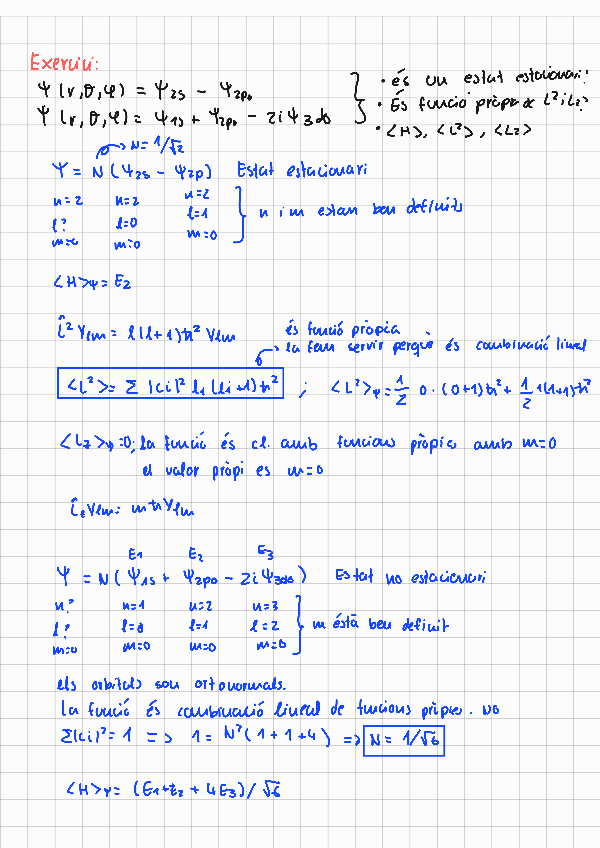 Exercici:
Ψ(r,θ,φ) = Ψ2s - Ψ2p0
Ψ(r,θ,φ) = Ψ1s + Ψ2p0 - 2iΨ3d0
• és un estat estacionari?
• És funció pròpia de L² i Lz?
• <H>, <L²>, <Lz>
N=1/√2
Ψ = N(Ψ2s - Ψ2p) Estat estacionari
n=2 n=2 n=2
l? l=0 l=1
m=0 m=0 m=0
n i m estan ben definits
<H>Ψ = E2
L̂² Ylm = l(l+1)ħ² Ylm
és funció pròpia
la fem servir perquè és combinació lineal
<L²> = Σ |ci|² li (li+1)ħ² ; <L²>Ψ = 1/2 0·(0+1)ħ² + 1/2 1(1+1)ħ²
<Lz>Ψ=0; la funció és cl. amb funcions pròpia amb m=0
el valor pròpi es m=0
L̂z Ylm = mħYlm
E1 E2 E3
Ψ = N(Ψ1s + Ψ2p0 - 2iΨ3d0) Estat no estacionari
n? n=1 n=2 n=3
l? l=0 l=1 l=2
m=0 m=0 m=0 m=0
m està ben definit
els orbitals son ortonormals.
la funció és combinació lineal de funcions pròpies. no
Σ|ci|² = 1 => 1 = N²(1+1+4) => N = 1/√6
<H>Ψ = (E1+E2 + 4E3)/√6